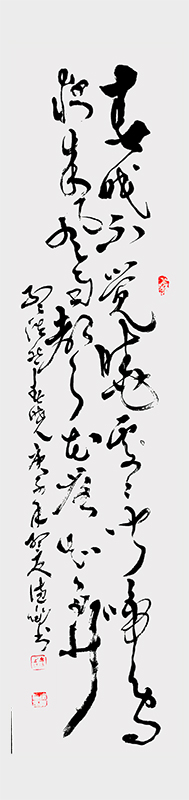 春眠不觉晓处处闻啼鸟
夜来风雨声花落知多少
孟浩然诗春晓庚子年夏书